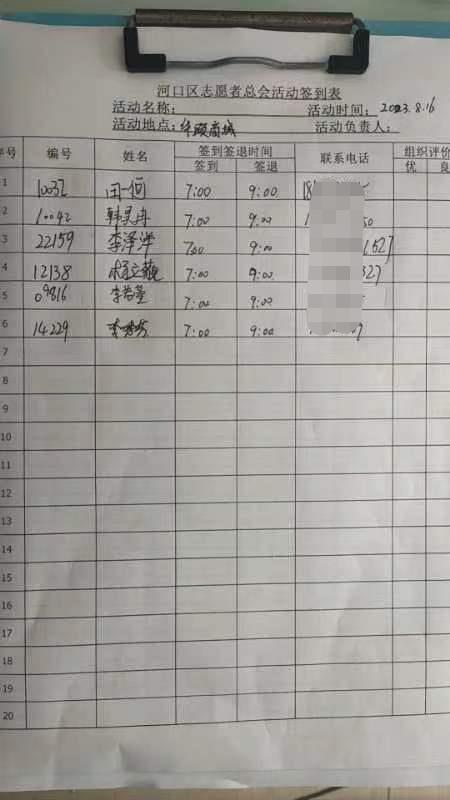 河口区志愿者总会活动签到表
活动名称: 活动时间: 2023.8.16
活动地点: 华硕商城 活动负责人:
序号 编号 姓名 签到签退时间 联系电话 组织评价
签到 签退 优 良
1 10032 7:00 9:00
2 10042 7:00 9:00
3 22159 李泽洋 7:00 9:00 527
4 12138 7:00 9:00 327
5 09816 7:00 9:00
6 14229 7:00 9:00
7
8
9
10
11
12
13
14
15
16
17
18
19
20